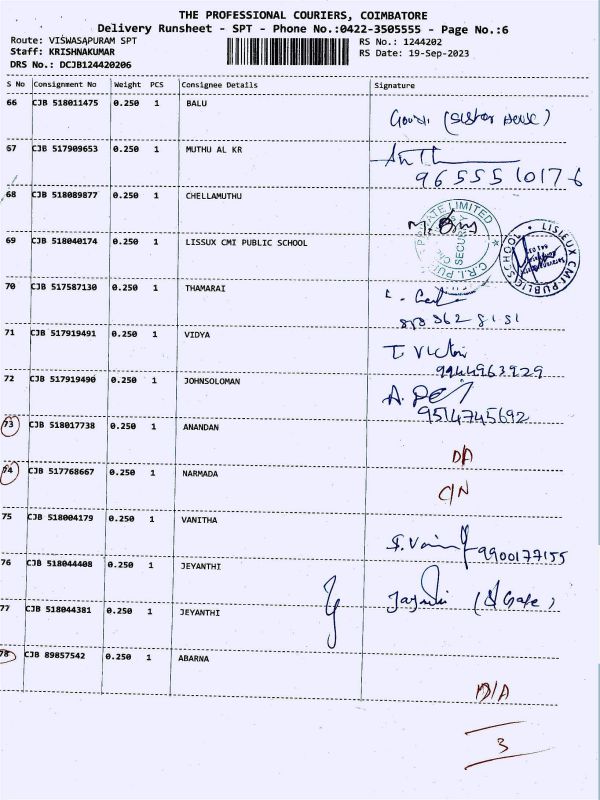 THE PROFESSIONAL COURIERS, COIMBATORE
Delivery Runsheet - SPT - Phone No.:0422-3505555 - Page No.:6
Route: VISWASAPURAM SPT
RS No.: 1244202
Staff: KRISHNAKUMAR
RS Date: 19-Sep-2023
DRS No.: DCJB124420206
S No Consignment No Weight PCS Consignee Details Signature
66 CJB 518011475 0.250 1 BALU
(Sister House)
67 CJB 517909653 0.250 1 MUTHU AL KR
96 555 10176
68 CJB 518089877 0.250 1 CHELLAMUTHU
PRIVATE LIMITED
SECURITY
C.R.I. PUMPS
69 CJB 518040174 0.250 1 LISSUX CMI PUBLIC SCHOOL
LISIEUX CMI PUBLIC SCHOOL
70 CJB 517587130 0.250 1 THAMARAI
71 CJB 517919491 0.250 1 VIDYA
T. Victor
9944963929
72 CJB 517919490 0.250 1 JOHNSOLOMAN
9514745692
73 CJB 518017738 0.250 1 ANANDAN
D/A
74 CJB 517768667 0.250 1 NARMADA
C/N
75 CJB 518004179 0.250 1 VANITHA
9900177155
76 CJB 518044408 0.250 1 JEYANTHI
77 CJB 518044381 0.250 1 JEYANTHI
78 CJB 89857542 0.250 1 ABARNA
D/A
3